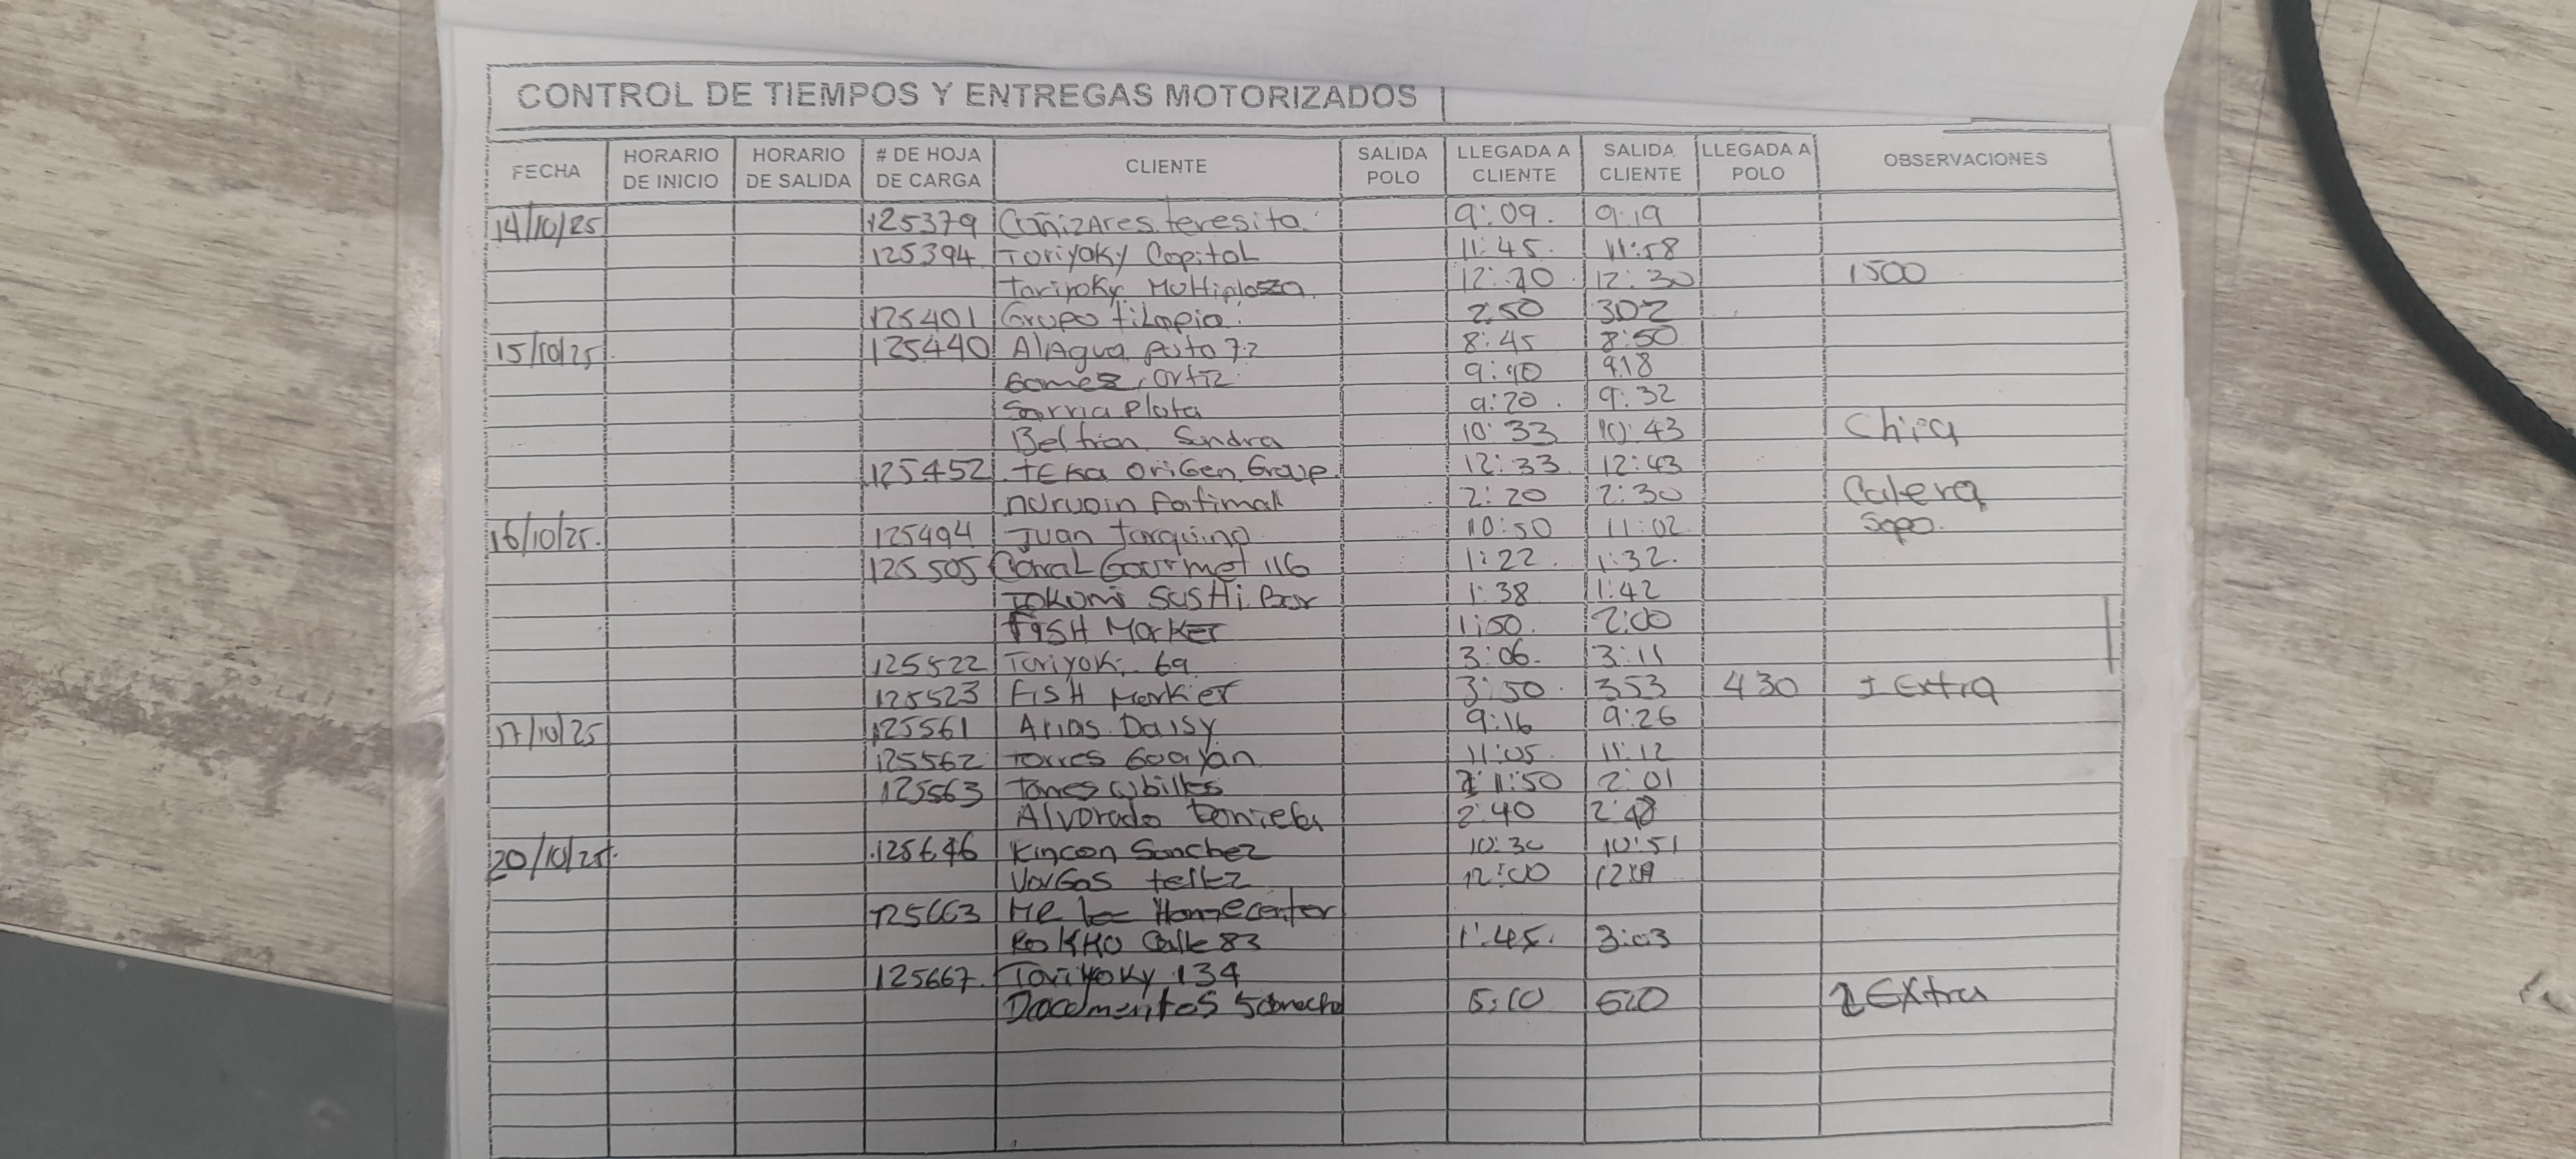 CONTROL DE TIEMPOS Y ENTREGAS MOTORIZADOS
FECHA HORARIO DE INICIO HORARIO DE SALIDA # DE HOJA DE CARGA CLIENTE SALIDA POLO LLEGADA A CLIENTE SALIDA CLIENTE LLEGADA A POLO OBSERVACIONES
14/10/25 125379 Cañizares teresita 9:09. 9:19
125394 Toriyoky Capital 11:45. 11:58
Toriyoky Multiplaza 12:20. 12:30 1500
125401 Grupo tilapia. 2:50 302
15/10/25. 125440 AlAgua Auto 72 8:45 8:50
Gomez Ortiz 9:10 918
Sarria Plata 9:20. 9:32
Beltran Sandra 10:33 10:43 Chia
125452 tEka OriGen Group 12:33 12:43
Fatimah 2:20 2:30 Calera
16/10/25. 125494 Juan Jarquino 10:50 11:02 Sopo.
125505 Coral Gourmet 116 1:22. 1:32.
Tokumi SusHi Bar 1:38 1:42
FiSH MarKet 1:50. 2:00
125522 Toriyoki 69 3:06. 3:11
125523 FiSH Market 3:50. 353 430 1 Extra
17/10/25 125561 Arias Daisy 9:16 9:26
125562 Torres Guayan 11:05. 11:12
125563 Torres 11:50 2:01
Alvarado Daniela 2:40 2:48
20/10/25. 125646 Rincon Sanchez 10:30 10:51
VarGas tellez 12:00
125663 Homecenter
KoKKO Calle 83 1:45. 3:03
125667. Toriyoky 134
Documentos 5:10 Extra